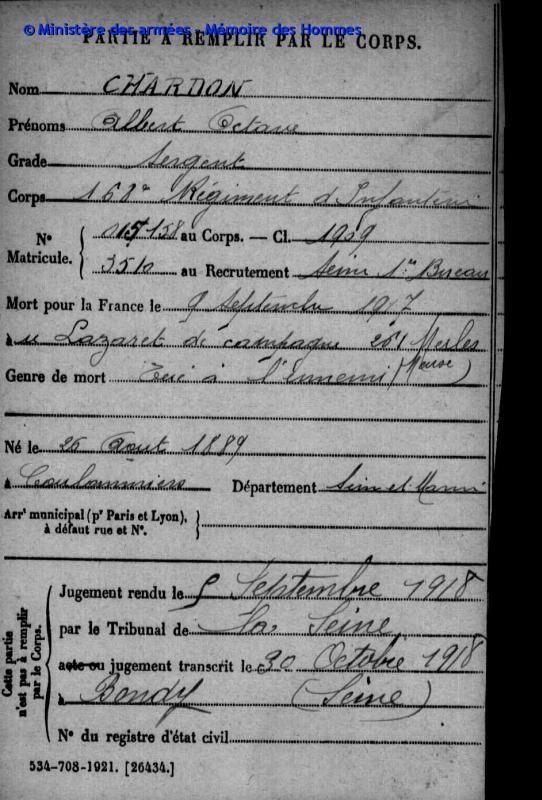 © Ministère des armées - Mémoire des Hommes
PARTIE À REMPLIR PAR LE CORPS.
Nom CHARDON
Prénoms Albert Octave
Grade Sergent
Corps 168e Régiment d'Infanterie
No Matricule. { 015158 au Corps. — Cl. 1909
3510 au Recrutement Seine 1er Bureau
Mort pour la France le 9 Septembre 1917
à Lazaret de campagne 261 Merles
(Meuse)
Genre de mort Tué à l'Ennemi
Né le 26 Août 1889
à Coulommiers Département Seine et Marne
Arrt municipal (pr Paris et Lyon), à défaut rue et No. }
Cette partie n'est pas à remplir par le Corps.
Jugement rendu le 5 Septembre 1918
par le Tribunal de La Seine
acte ou jugement transcrit le 30 Octobre 1918
à Bondy (Seine)
No du registre d'état civil
534-708-1921. [26434.]